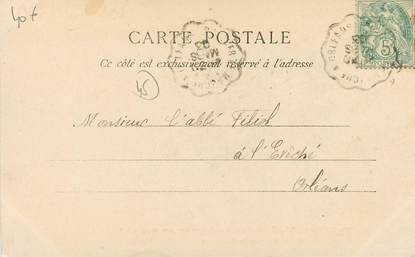 40 f
CARTE POSTALE
Ce côté est exclusivement réservé à l'adresse
45
Monsieur l'abbé Filiol
à l'Evêché
Orléans
5